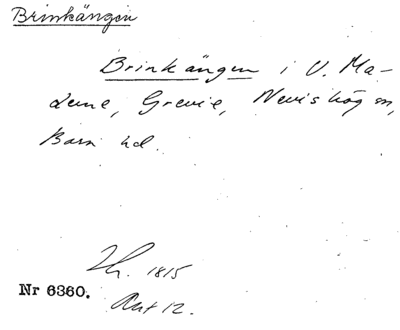 Brinkängen
Brinkängen i V. Ma-
leme, Grevie, Nevishög sn,
Bara hd.
Lh. 1815
Nr 6360.
Akt 12.